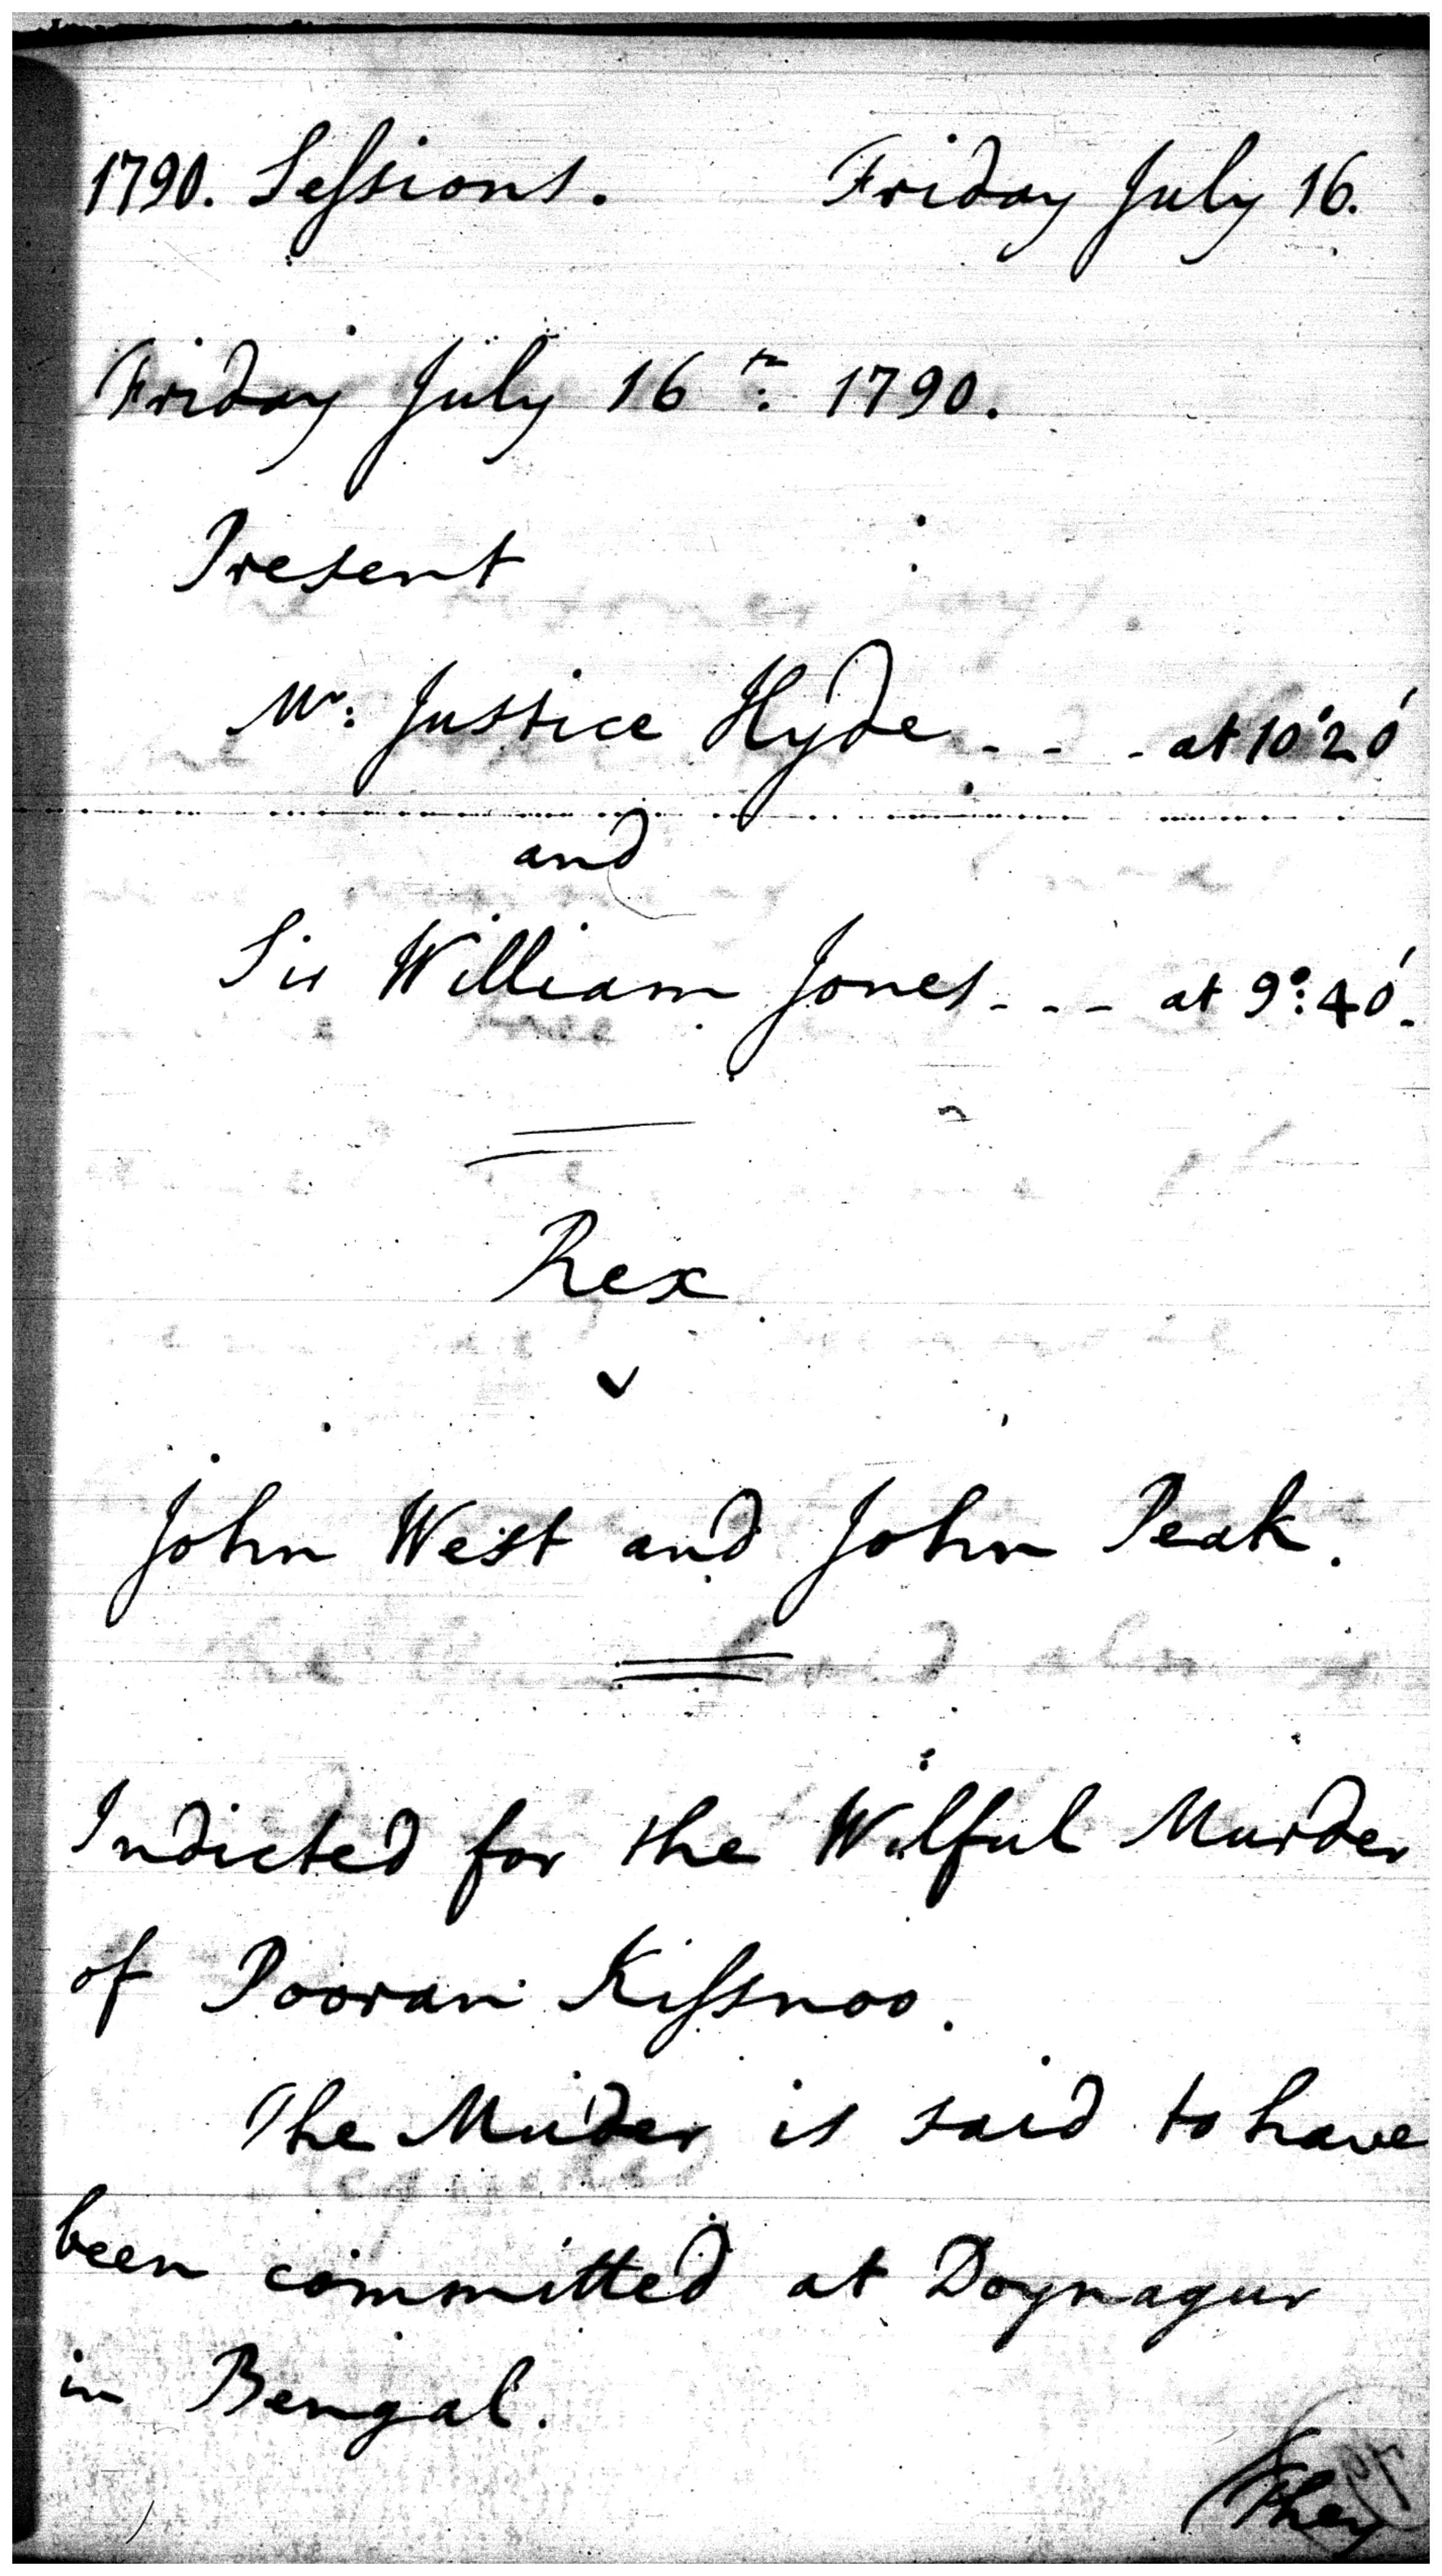 1790. Sessions. Friday July 16.
Friday July 16th: 1790.
Present
Mr: Justice Hyde - - - at 10°20'
and
Sir William Jones - - - at 9°:40'.
Rex
v
John West and John Peak.
Indicted for the Wilful Murder
of Pooran Kissnoo.
The Murder is said to have
been committed at Doynagur
in Bengal.
They